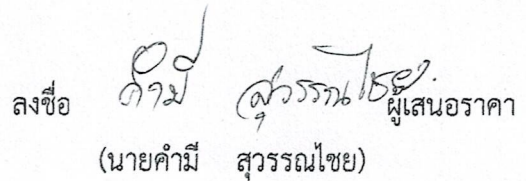 ลงชื่อ คำมี สุวรรณไชย ผู้เสนอราคา
(นายคำมี สุวรรณไชย)